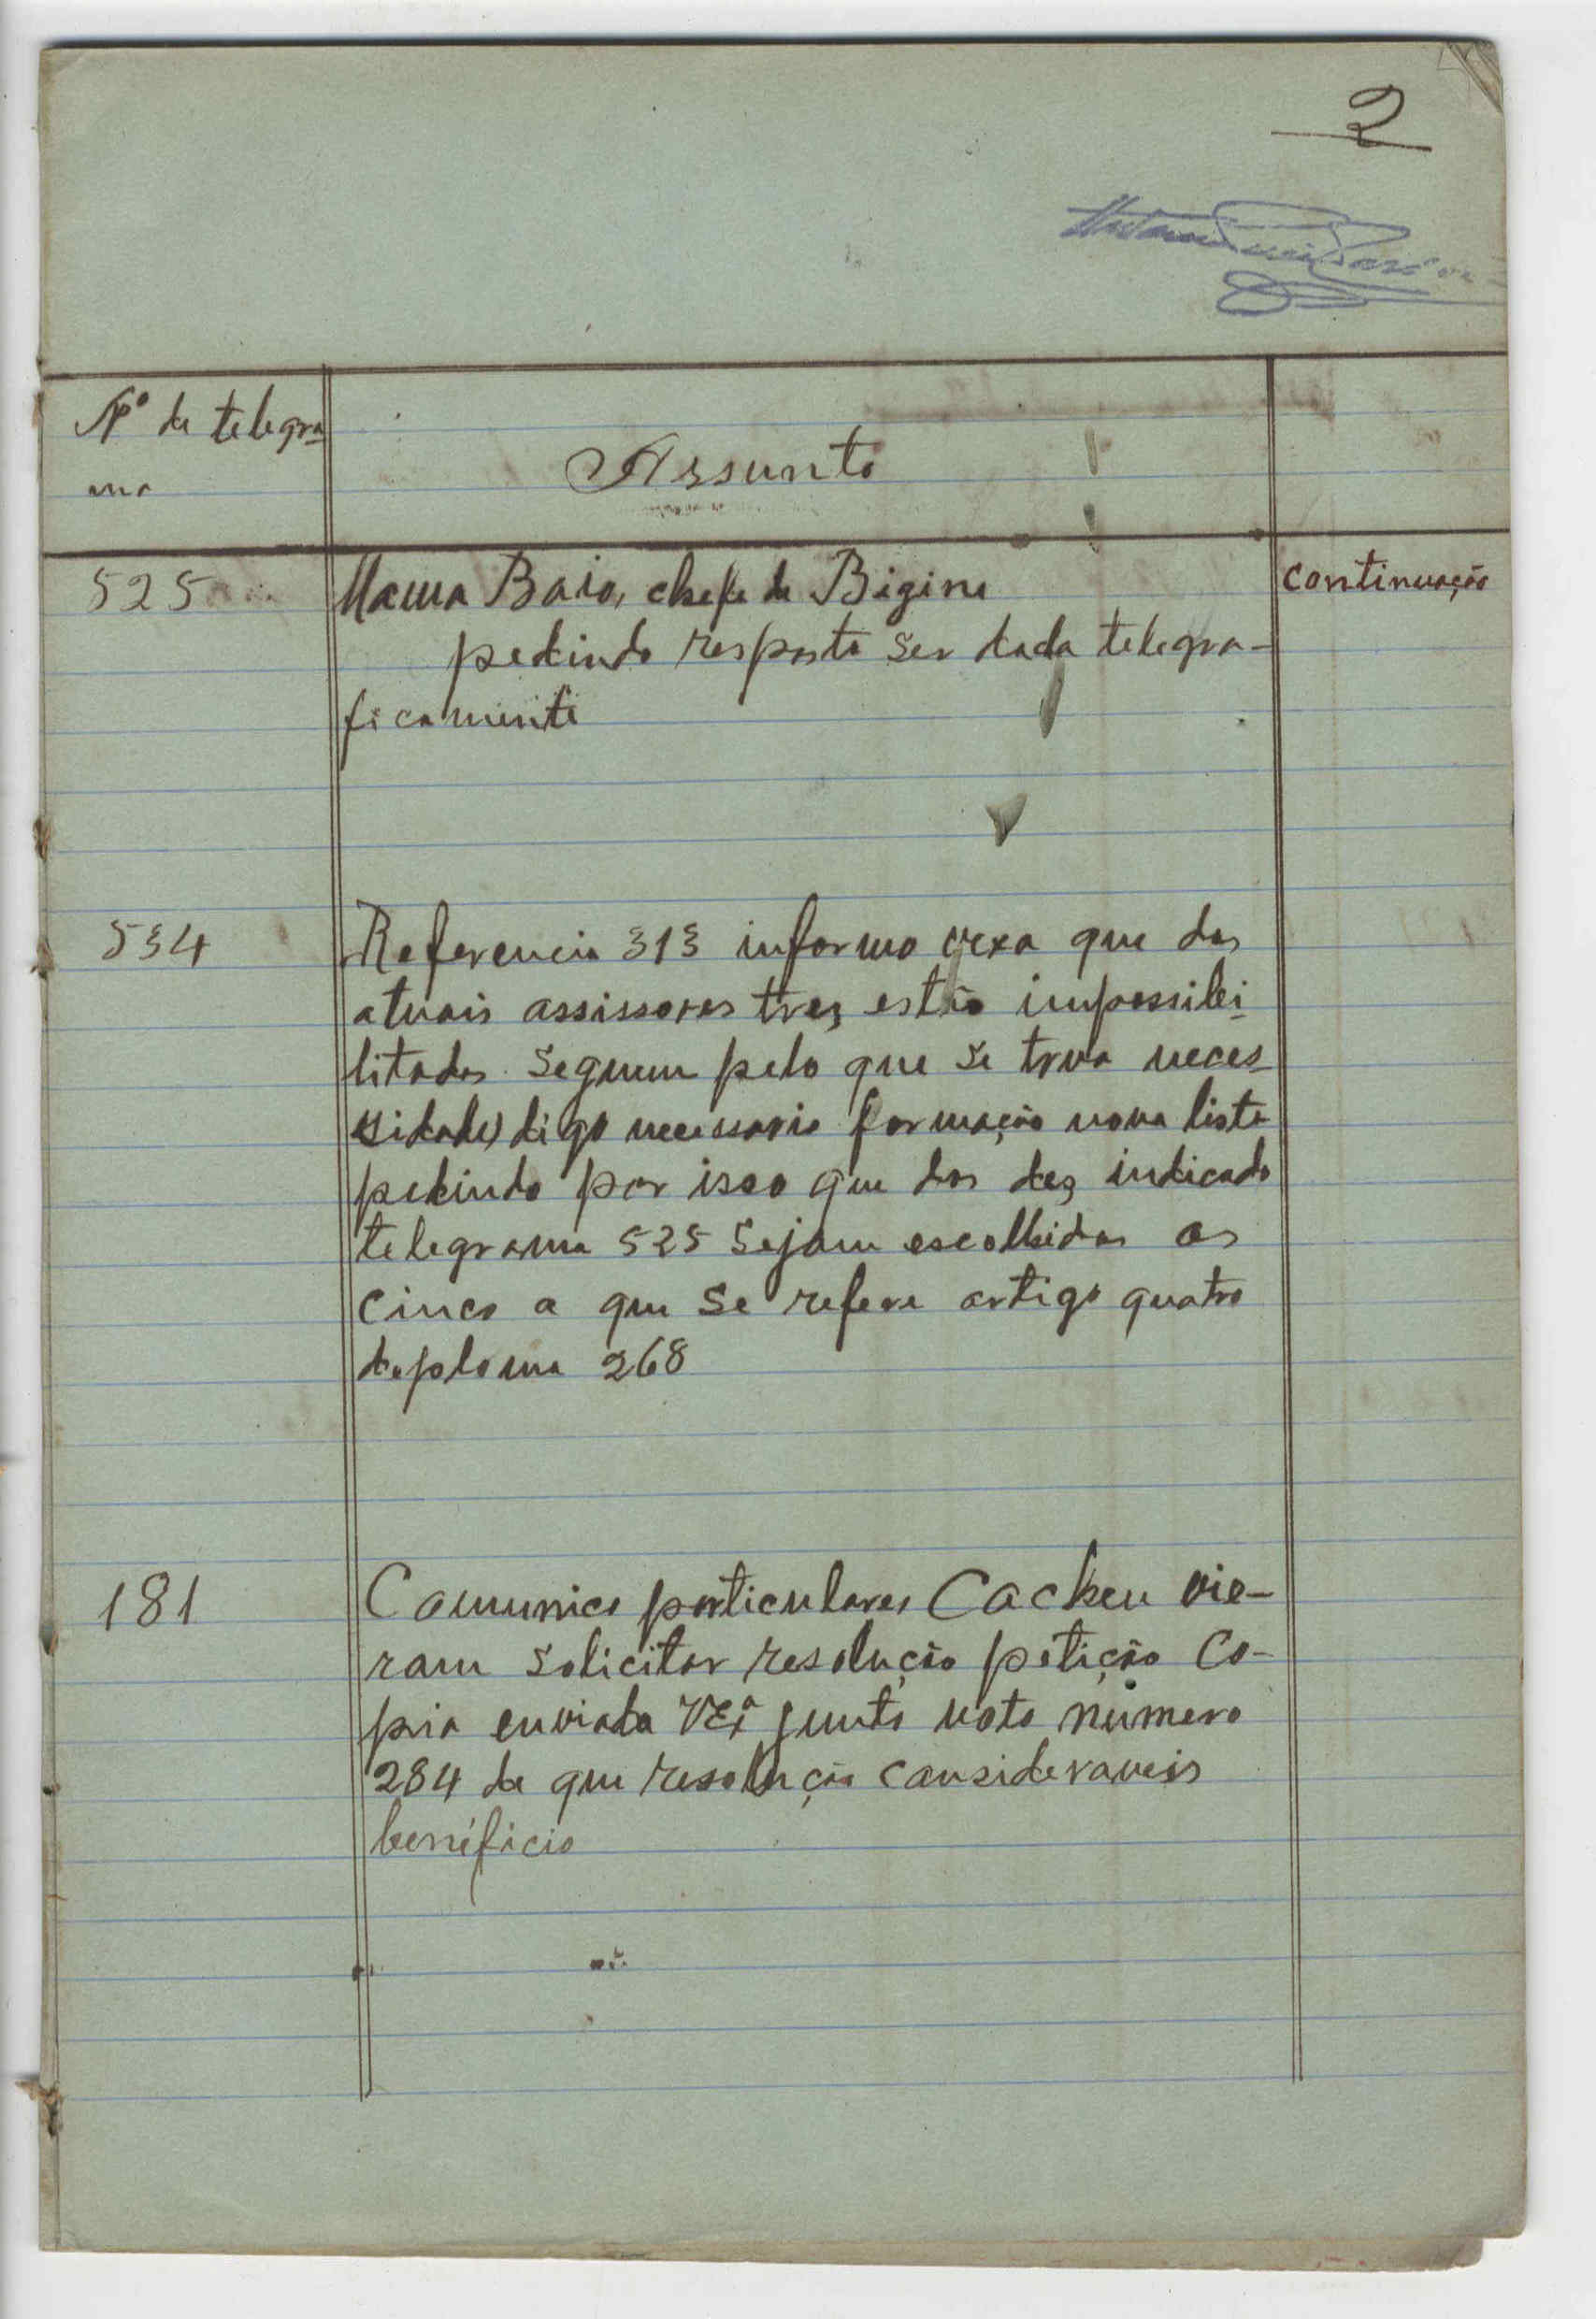 2
Nº de telegra
ma
Assunto
525 Mama Baio, chefe de Bigine continuação
pedindo resposta ser dada telegra-
ficamente
534 Referencia 313 informo vexa que dos
atuais assissores tres estão impossibi-
litados seguem pelo que se trna neces-
sidade) digo necessario formação nova lista
pedindo por isso que dos dez indicado
telegrama 525 sejam escolhidos os
cinco a que se refere artigo quatro
deploma 268
181 Comunico particulares Cacheu vie-
ram solicitar resolução petição co-
pia enviada VExª junto nota número
284 de que resolução consideraveis
benéficio